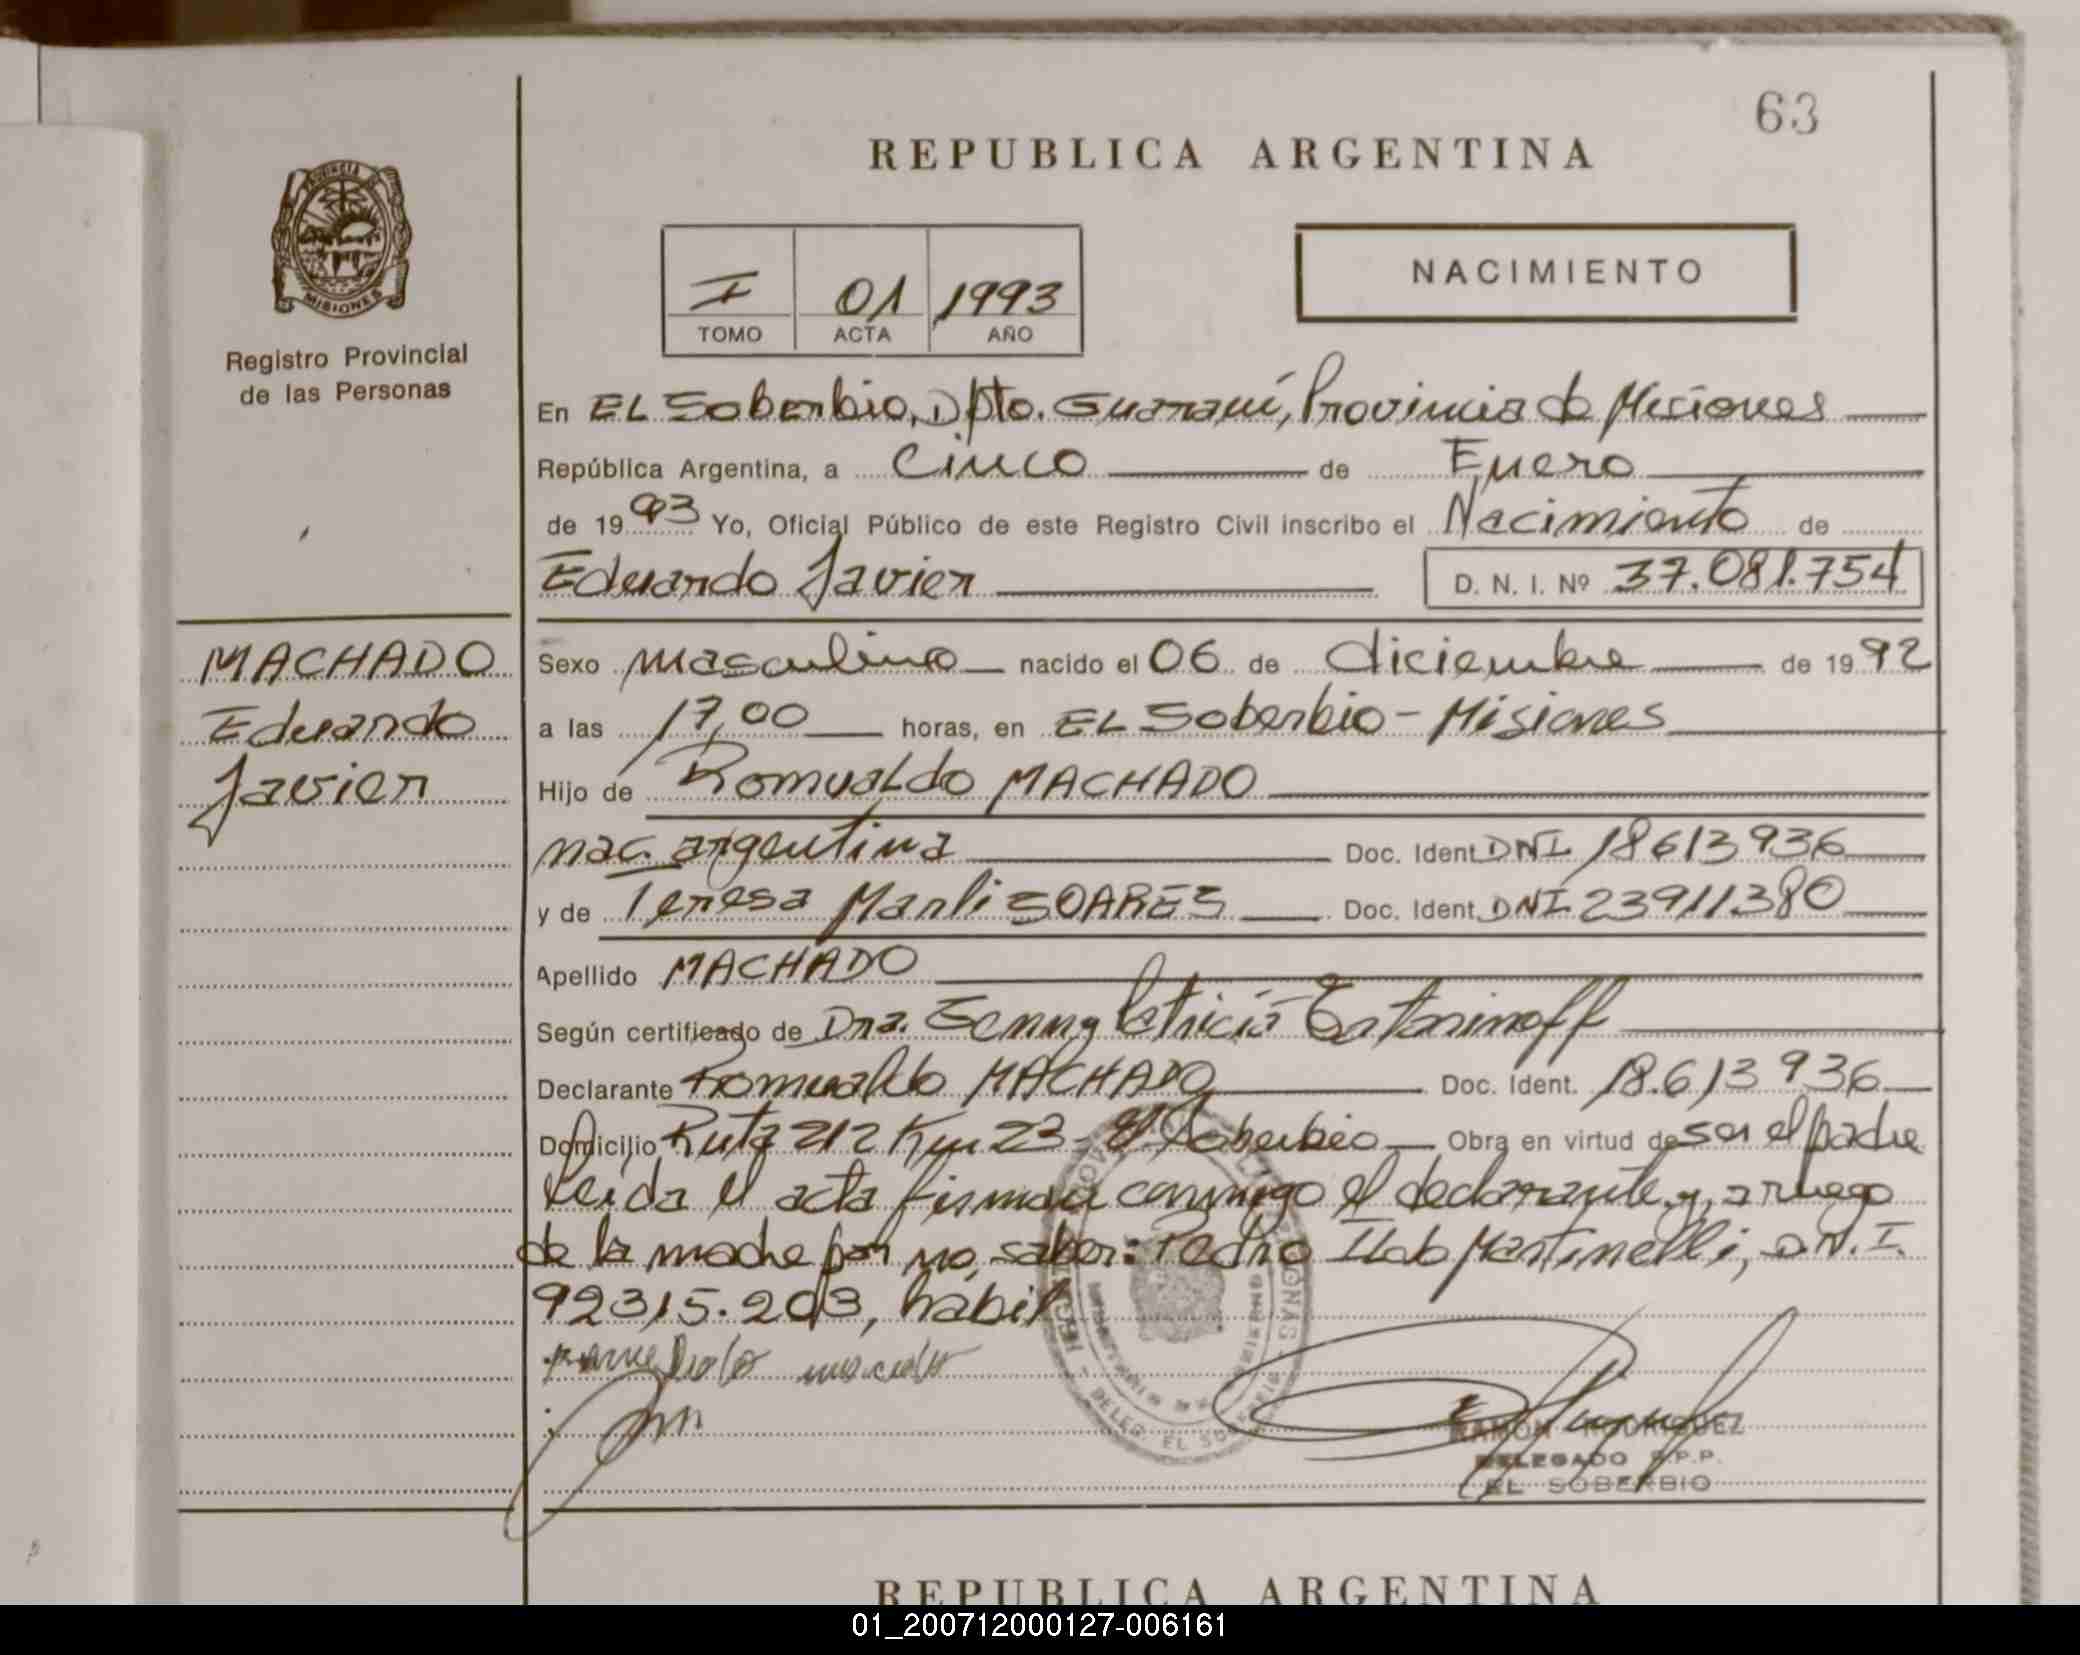 63
REPUBLICA ARGENTINA
PROVINCIA DE
MISIONES
Registro Provincial
de las Personas
I 01 1993
TOMO ACTA AÑO
NACIMIENTO
En EL Soberbio, Dpto. Guaraní, Provincia de Misiones
República Argentina, a Cinco de Enero
de 1993 Yo, Oficial Público de este Registro Civil inscribo el Nacimiento de
Eduardo Javier D. N. I. Nº 37.081.754
MACHADO
Eduardo
Javier
Sexo masculino nacido el 06 de diciembre de 1992
a las 17,00 horas, en EL Soberbio - Misiones
Hijo de Romualdo MACHADO
nac. argentina Doc. Ident. DNI 18613936
y de Teresa Marli SOARES Doc. Ident. DNI 23911380
Apellido MACHADO
Según certificado de Dra. Patricia
Declarante Romualdo MACHADO Doc. Ident. 18.613936
Domicilio Ruta 212 Km 23 - El Soberbio Obra en virtud de ser el padre
Leída el acta firman conmigo el declarante y, a ruego
de la madre por no saber: Pedro Martinelli, D.N.I.
92315.203, habil
RAMON RODRIGUEZ
DELEGADO R.P.P.
EL SOBERBIO
REPUBLICA ARGENTINA
01_200712000127-006161